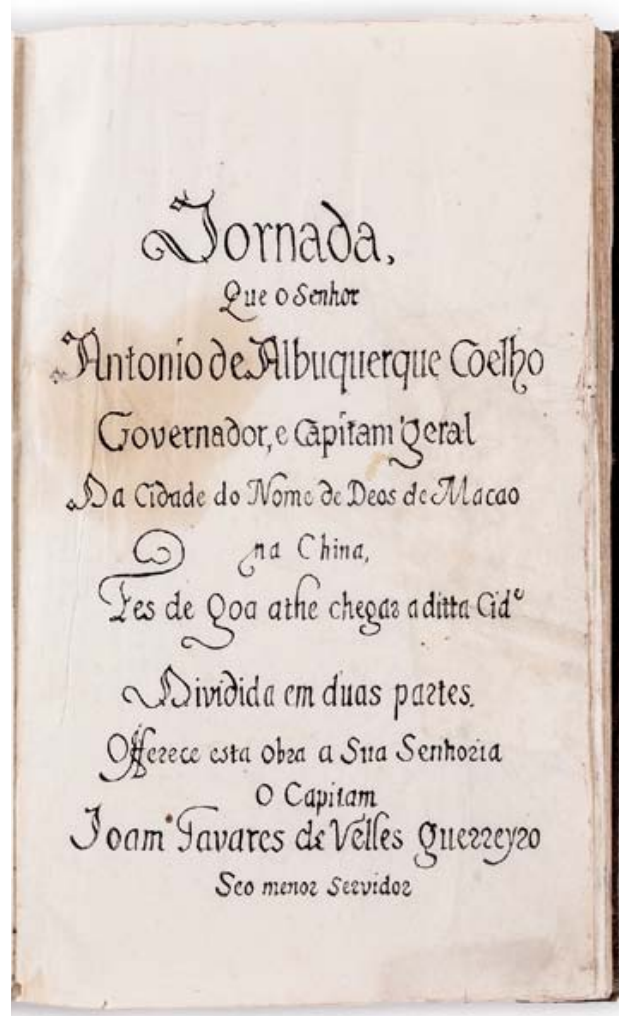 Jornada,
Que o Senhor
Antonio de Albuquerque Coelho
Governador, e Capitam geral
Da Cidade do Nome de Deos de Macao
na China,
Fes de Goa athe chegar a ditta Cidᵉ
Dividida em duas partes.
Offerece esta obra a Sua Senhoria
O Capitam
Joam Tavares de Velles Guerreyro
Seo menor Servidor